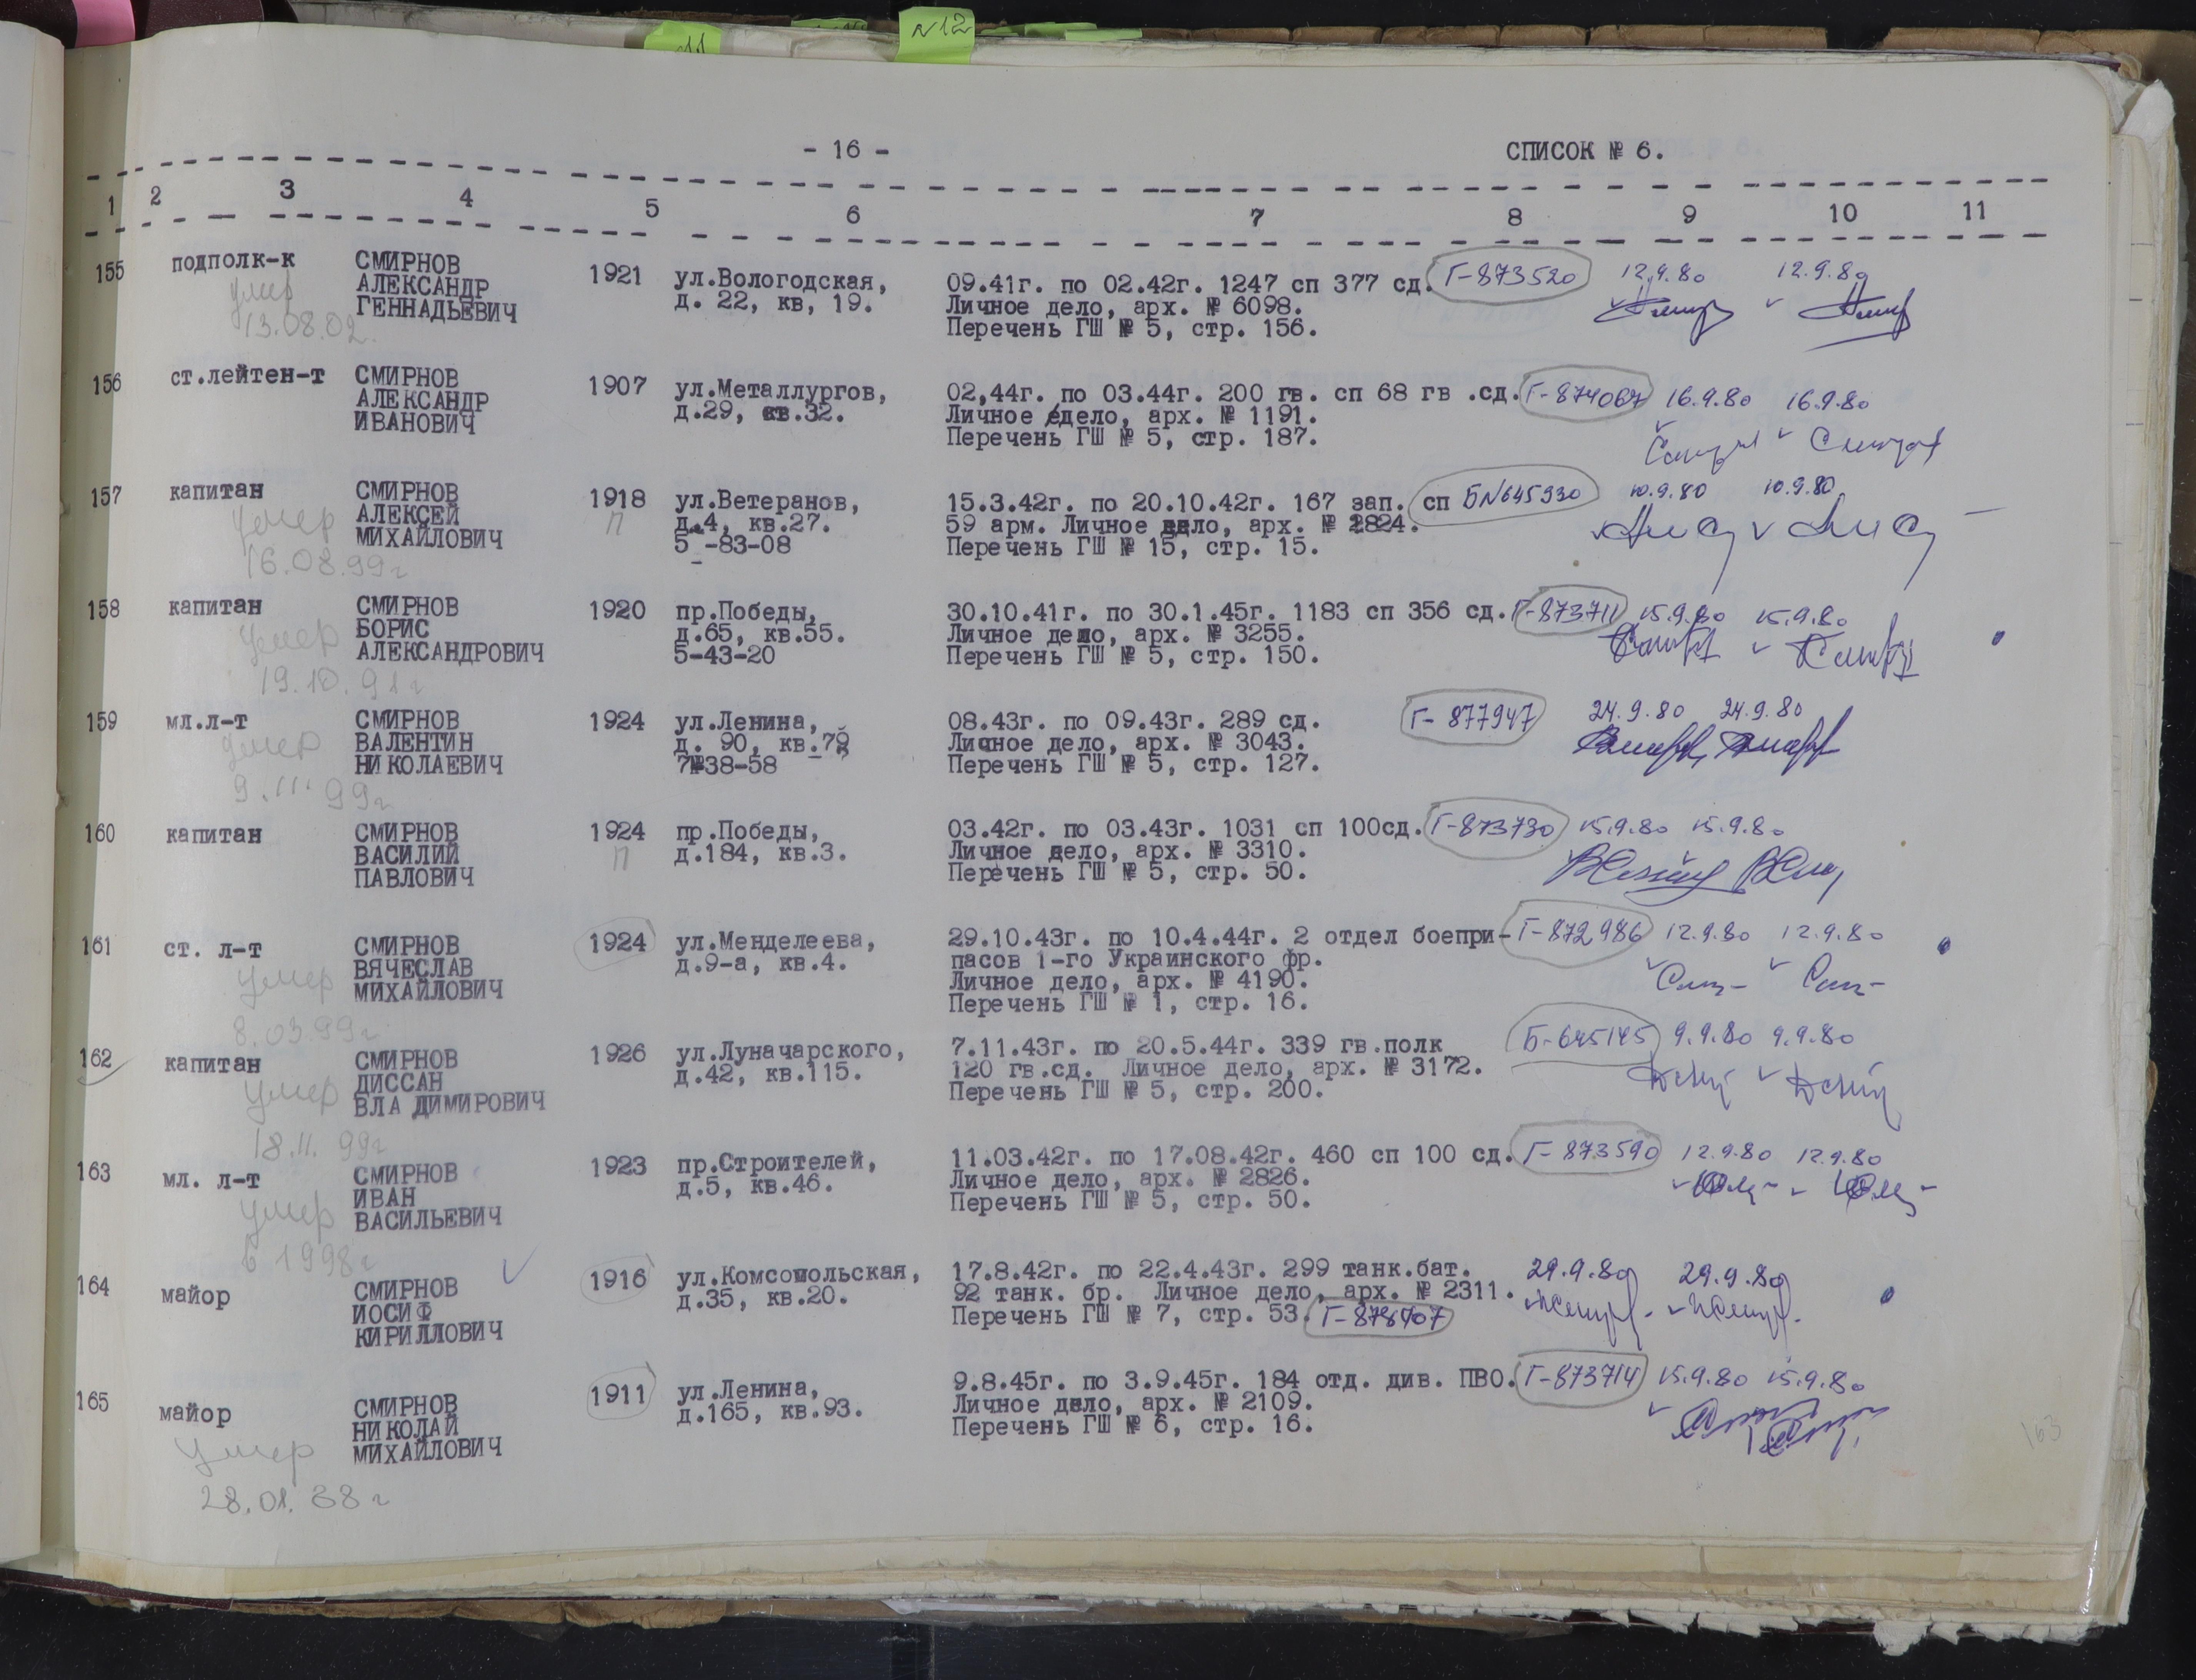 №12
- 16 -
СПИСОК № 6.
1 2 3 4 5 6 7 8 9 10 11
155 подполк-к СМИРНОВ 1921 ул.Вологодская, 09.41г. по 02.42г. 1247 сп 377 сд. Г-873520 12.9.80 12.9.80
умер АЛЕКСАНДР д. 22, кв, 19. Личное дело, арх. № 6098.
13.08.02. ГЕННАДЬЕВИЧ Перечень ГШ № 5, стр. 156.
156 ст.лейтен-т СМИРНОВ 1907 ул.Металлургов, 02,44г. по 03.44г. 200 гв. сп 68 гв .сд. Г-874067 16.9.80 16.9.80
АЛЕКСАНДР д.29, кв.32. Личное дело, арх. № 1191.
ИВАНОВИЧ Перечень ГШ № 5, стр. 187.
157 капитан СМИРНОВ 1918 ул.Ветеранов, 15.3.42г. по 20.10.42г. 167 зап. сп Б№645930 10.9.80 10.9.80
умер АЛЕКСЕЙ п д.4, кв.27. 59 арм. Личное дело, арх. № 2824.
16.08.99г МИХАЙЛОВИЧ 5 -83-08 Перечень ГШ № 15, стр. 15.
158 капитан СМИРНОВ 1920 пр.Победы, 30.10.41г. по 30.1.45г. 1183 сп 356 сд. Г-873711 15.9.80 15.9.80
умер БОРИС д.65, кв.55. Личное дело, арх. № 3255.
19.10.91г АЛЕКСАНДРОВИЧ 5-43-20 Перечень ГШ № 5, стр. 150.
159 мл.л-т СМИРНОВ 1924 ул.Ленина, 08.43г. по 09.43г. 289 сд. Г-877947 24.9.80 24.9.80
умер ВАЛЕНТИН д. 90, кв.78 Личное дело, арх. № 3043.
9.11.99г НИКОЛАЕВИЧ 7№38-58 Перечень ГШ № 5, стр. 127.
160 капитан СМИРНОВ 1924 пр.Победы, 03.42г. по 03.43г. 1031 сп 100сд. Г-873730 15.9.80 15.9.80
ВАСИЛИЙ п д.184, кв.3. Личное дело, арх. № 3310.
ПАВЛОВИЧ Перечень ГШ № 5, стр. 50.
161 ст. л-т СМИРНОВ 1924 ул.Менделеева, 29.10.43г. по 10.4.44г. 2 отдел боепри- Г-872986 12.9.80 12.9.80
умер ВЯЧЕСЛАВ д.9-а, кв.4. пасов 1-го Украинского фр.
МИХАЙЛОВИЧ Личное дело, арх. № 4190.
8.03.99г Перечень ГШ № 1, стр. 16.
162 капитан СМИРНОВ 1926 ул.Луначарского, 7.11.43г. по 20.5.44г. 339 гв.полк Б-645145 9.9.80 9.9.80
умер ДИССАН д.42, кв.115. 120 гв.сд. Личное дело, арх. № 3172.
18.11.99г ВЛАДИМИРОВИЧ Перечень ГШ № 5, стр. 200.
163 мл. л-т СМИРНОВ 1923 пр.Строителей, 11.03.42г. по 17.08.42г. 460 сп 100 сд. Г-873590 12.9.80 12.9.80
умер ИВАН д.5, кв.46. Личное дело, арх. № 2826.
в 1998г ВАСИЛЬЕВИЧ Перечень ГШ № 5, стр. 50.
164 майор СМИРНОВ 1916 ул.Комсомольская, 17.8.42г. по 22.4.43г. 299 танк.бат. 29.9.80 29.9.80
ИОСИФ д.35, кв.20. 92 танк. бр. Личное дело, арх. № 2311.
КИРИЛЛОВИЧ Перечень ГШ № 7, стр. 53. Г-878707
165 майор СМИРНОВ 1911 ул.Ленина, 9.8.45г. по 3.9.45г. 184 отд. див. ПВО. Г-873714 15.9.80 15.9.80
умер НИКОЛАЙ д.165, кв.93. Личное дело, арх. № 2109.
28.01.88г МИХАЙЛОВИЧ Перечень ГШ № 6, стр. 16.
163